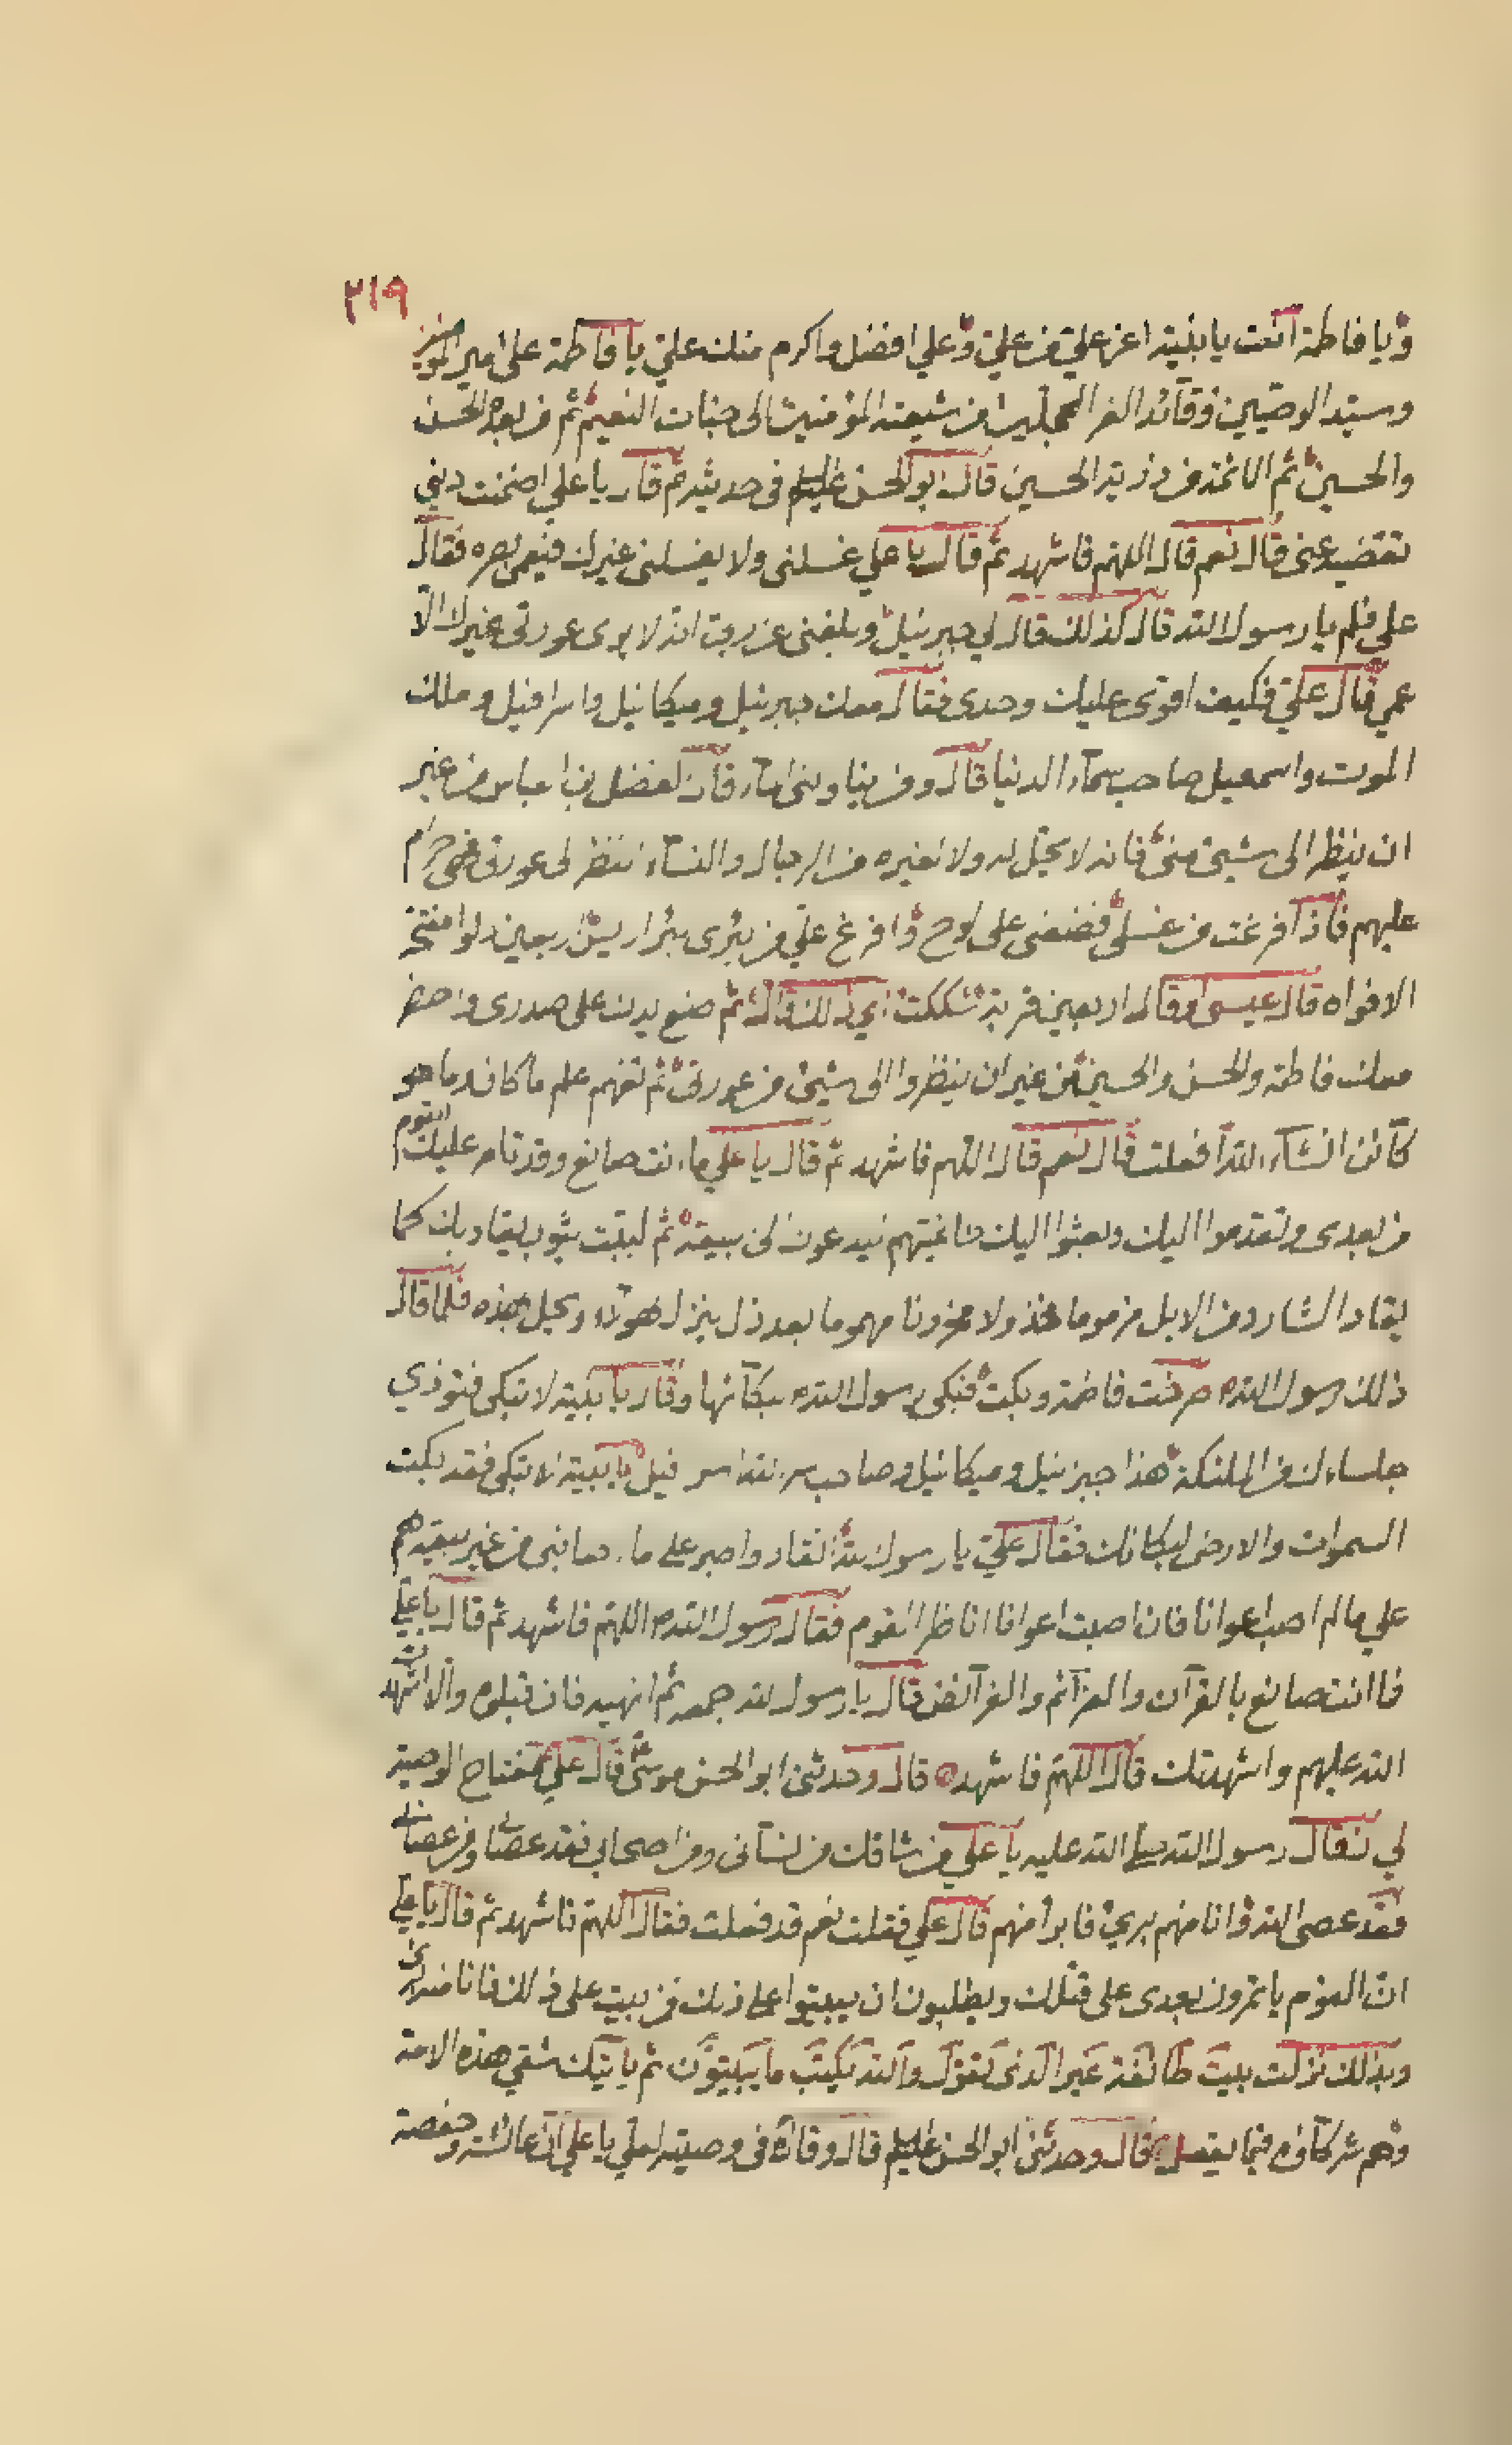 ٢١٩
ويا فاطمة انت يا بنية اعز علي من علي وعلي افضل واكرم منك علي يا فاطمة علي امير المؤمنين
وسيد الوصيين وقائد الغر المحجلين من شيعته المؤمنين الى جنات النعيم ثم من بعده الحسن
والحسين ثم الائمة من ذرية الحسين قال ابو الحسن عليه السلم في حديثه ثم قال يا علي اضمنت ديني
تقضيه عني قال نعم قال اللهم فاشهد ثم قال يا علي غسلني ولا يغسلني غيرك فيعمى بصره فقال
علي فلم يا رسول الله قال كذلك قال لي جبرئيل وبلغني عن ربي انه لا يرى عورتي غيرك الا
عمي قال علي فكيف اقوى عليك وحدي فقال معك جبرئيل وميكائيل واسرافيل وملك
الموت واسمعيل صاحب سماء الدنيا قال ومن يناولني الماء قال الفضل بن العباس من غير
ان ينظر الى شيئ مني فانه لا يحل له ولا لغيره من الرجال والنساء النظر الى عورتي فهي حرام
عليهم فاذا فرغت من غسلي فضعني على لوح وافرغ علي من بئري بئر اريس اربعين دلوا مفتحة
الافواه قال عيسى او قال اربعين قربة شككت اي ذلك قال ثم ضع يدك على صدري واحضر
معك فاطمة والحسن والحسين من غير ان ينظروا الى شيئ من عورتي ثم تفهم علم ما كان وما هو
كائن انشاء الله افعلت قال نعم قال اللهم فاشهد ثم قال يا علي ما انت صانع وقد تامر عليك القوم
من بعدي وتقدموا اليك وبعثوا اليك طاغيتهم فيدعوك الى بيعته ثم لببت بثوبك يقاد بك كما
يقاد الشارد من الابل مزموما مخذولا محزونا مهموما بعد ذل ينزل بهولاء ويحل بهذه فلما قال
ذلك رسول الله صرخت فاطمة وبكت فبكى رسول الله ببكائها وقال يا بنية لا تبكي فتوذي
جلساءك من الملئكة هذا جبرئيل وميكائيل وصاحب سر الله اسرافيل يا بنية لا تبكي فقد بكت
السموات والارض لبكائك فقال علي يا رسول الله انقاد واصبر على ما اصابني من غير بيعة لهم
علي ما لم اصب اعوانا فان اصبت اعوانا اناظر القوم فقال رسول الله اللهم فاشهد ثم قال يا علي
فما انت صانع بالقرآن والعزائم والفرائض قال يا رسول الله اجمعه ثم آتيهم به فان قبلوه والا اشهدت
الله عليهم واشهدتك قال اللهم فاشهد قال وحدثني ابو الحسن موسى قال علي مفتاح الوصية
لي فقال رسول الله صلى الله عليه يا علي من شاقك من نسائي ومن اصحابي فقد عصاني ومن عصاني
فقد عصى الله وانا منهم بريئ فابرأ منهم قال علي فقلت نعم قد فعلت فقال اللهم فاشهد ثم قال يا علي
ان القوم ياتمرون بعدي على قتلك ويظلمون ان يبيتوا على ذلك فمن يبيت على ذلك فانا منه بري
وبذلك نزلت بيت طائفة غير الذي تقول والله يكتب ما يبيتون ثم ياتيك شقي هذه الامة
وهم شركاؤه فيما يفعل قال وحدثني ابو الحسن عليه السلم قال وقال في وصيته لعلي يا علي ان عائشة وحفصة